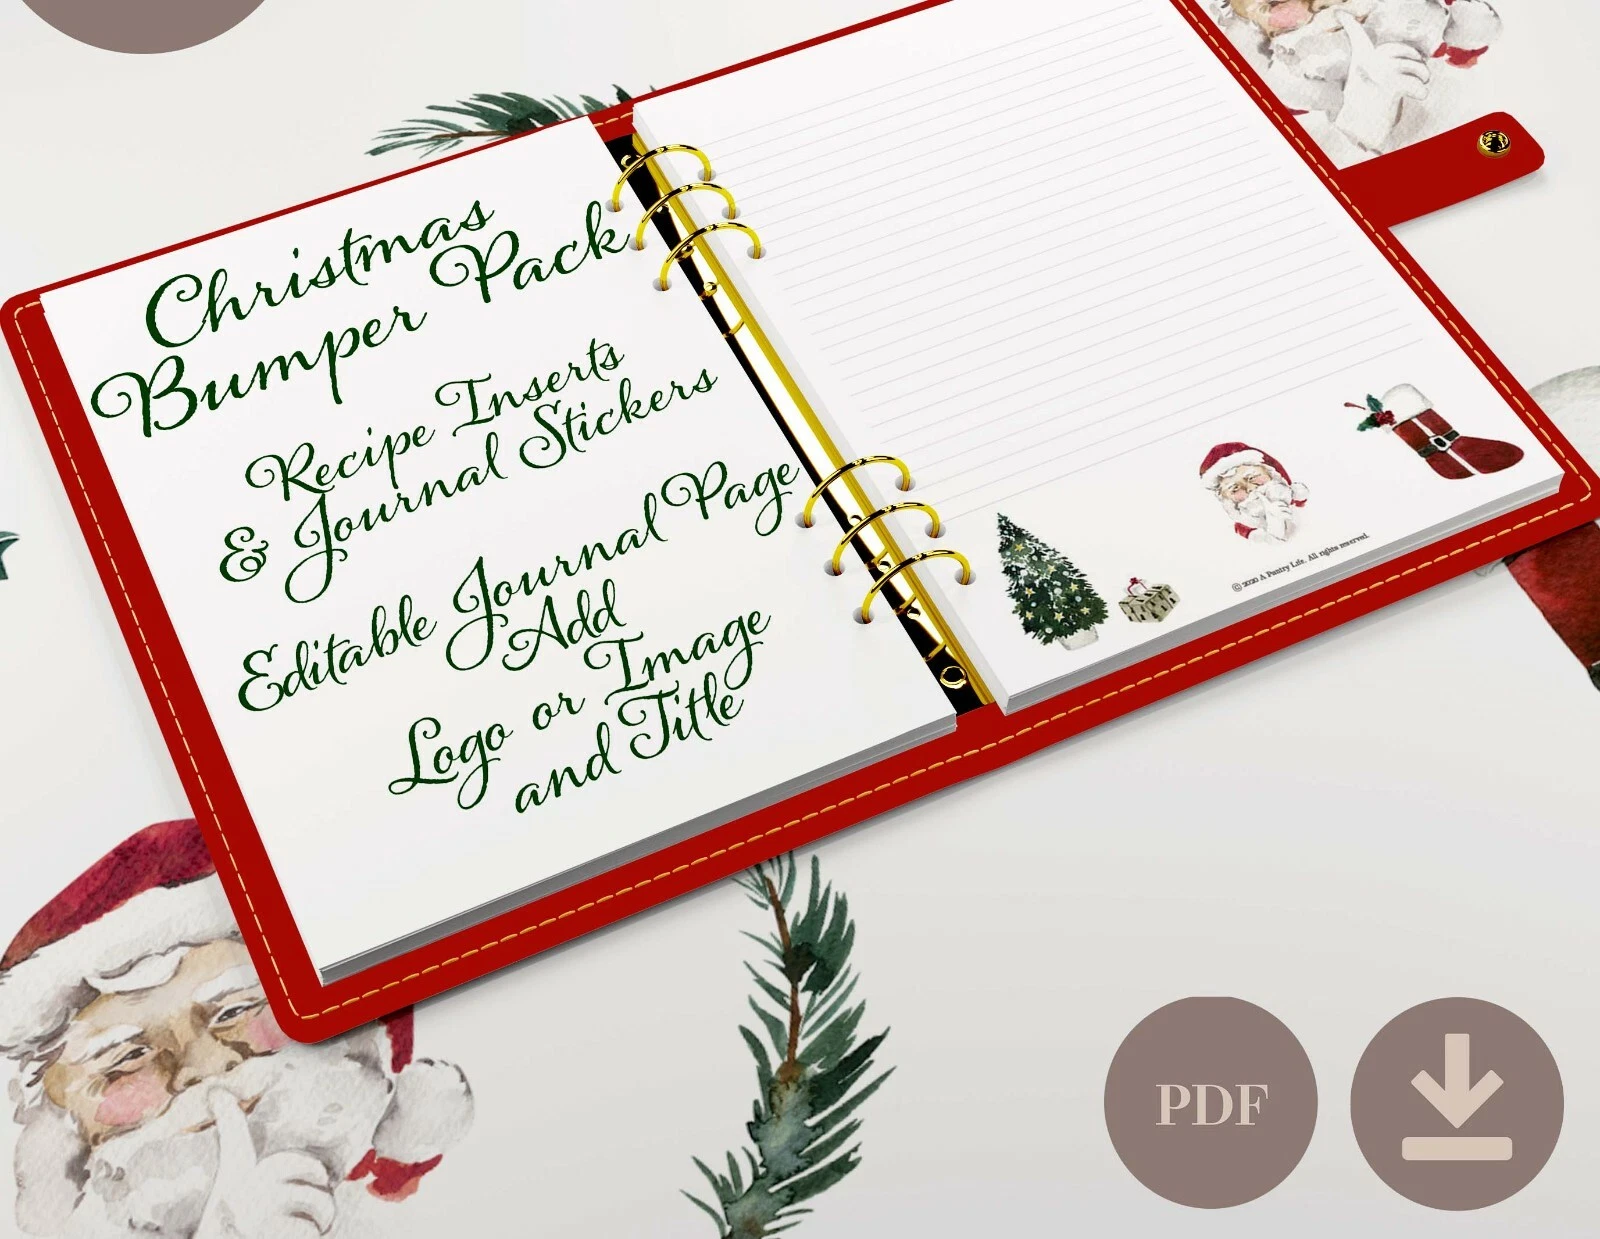 Christmas
Bumper Pack
Recipe Inserts
& Journal Stickers
Editable Journal Page
Add
Logo or Image
and Title
© 2020 A Pantry Life. All rights reserved.
PDF